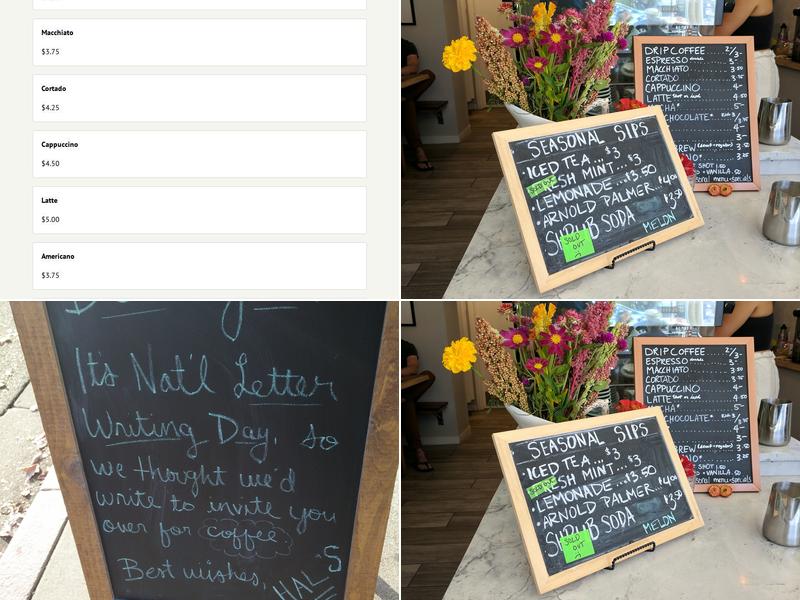 Macchiato
$3.75
Cortado
$4.25
Cappuccino
$4.50
Latte
$5.00
Americano
$3.75
DRIP COFFEE ... 2/3-
ESPRESSO double ... 3-
MACCHIATO ... 3.50
CORTADO ... 3.75
CAPPUCCINO ... 4-
LATTE hot or iced ... 4.50
CHA* ... 5-
CHOCOLATE*
4-
3-
BREW
NO* ... 3.25
SHOT 1.50
VANILLA .50
menu specials
SEASONAL SIPS
• ICED TEA ... $3
FRESH MINT ... $3
• LEMONADE ... $3.50
• ARNOLD PALMER ... $4.00
SHRUB SODA $3.50
SOLD OUT
MELON
It's Nat'l Letter
Writing Day, so
we thought we'd
write to invite you
over for coffee
Best wishes,
HAL'S
DRIP COFFEE ... 2/3-
ESPRESSO double ... 3-
MACCHIATO ... 3.50
CORTADO ... 3.75
CAPPUCCINO ... 4-
LATTE hot or iced ... 4.50
CHA* ... 5-
CHOCOLATE*
4-
3-
BREW
NO* ... 3.25
SHOT 1.50
VANILLA .50
menu specials
SEASONAL SIPS
• ICED TEA ... $3
FRESH MINT ... $3
• LEMONADE ... $3.50
• ARNOLD PALMER ... $4.00
SHRUB SODA $3.50
SOLD OUT
MELON